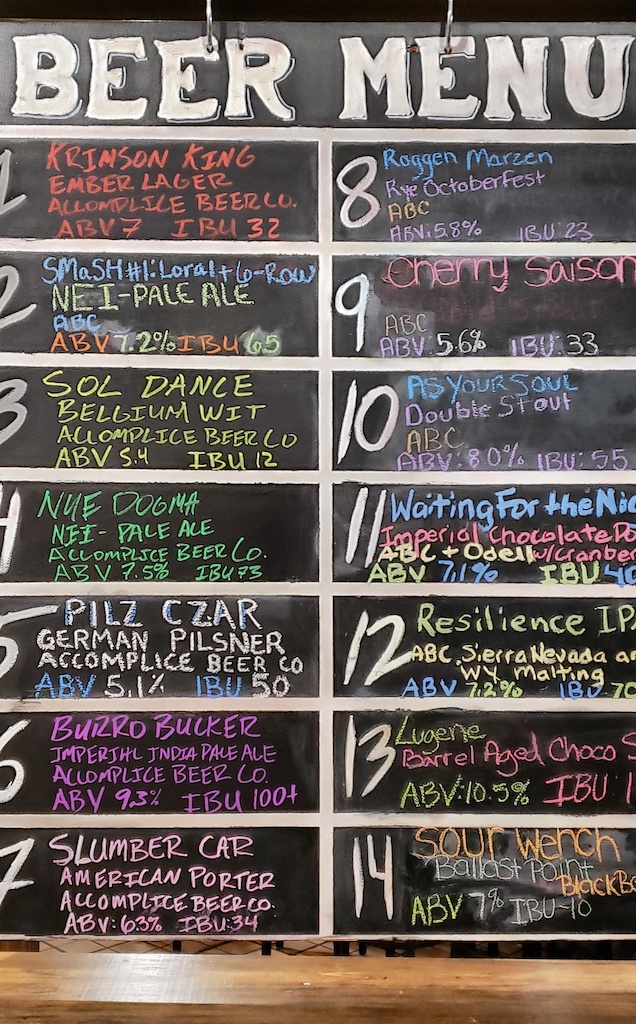 BEER MENU
1
KRIMSON KING
EMBER LAGER
ACCOMPLICE BEER CO.
ABV 7 IBU 32
2
SMaSH#1: Loral + 6-Row
NEI-PALE ALE
ABC
ABV 7.2% IBU 65
3
SOL DANCE
BELGIUM WIT
ACCOMPLICE BEER CO
ABV 5.4 IBU 12
4
NUE DOGMA
NEI- PALE ALE
ACCOMPLICE BEER CO.
ABV 7.5% IBU 73
5
PILZ CZAR
GERMAN PILSNER
ACCOMPLICE BEER CO
ABV 5.1% IBU 50
6
BURRO BUCKER
IMPERIAL INDIA PALE ALE
ACCOMPLICE BEER CO.
ABV 9.3% IBU 100+
7
SLUMBER CAR
AMERICAN PORTER
ACCOMPLICE BEER CO.
ABV: 6.3% IBU: 34
8
Roggen Marzen
Rye Octoberfest
ABC
ABV: 5.8% IBU: 23
9
Cherry Saison
ABC
ABV: 5.6% IBU: 33
10
AS YOUR SOUL
Double Stout
ABC
ABV: 8.0% IBU: 55
11
Waiting For the Nig
Imperial Chocolate Po
ABC + Odell w/Cranber
ABV 7.1% IBU 40
12
Resilience IPA
ABC, Sierra Nevada an
WY Malting
ABV 7.2% IBU 70
13
Lugene
Barrel Aged Choco S
ABV: 10.5% IBU: 1
14
Sour Wench
Ballast Point
BlackBe
ABV 7% IBU-10